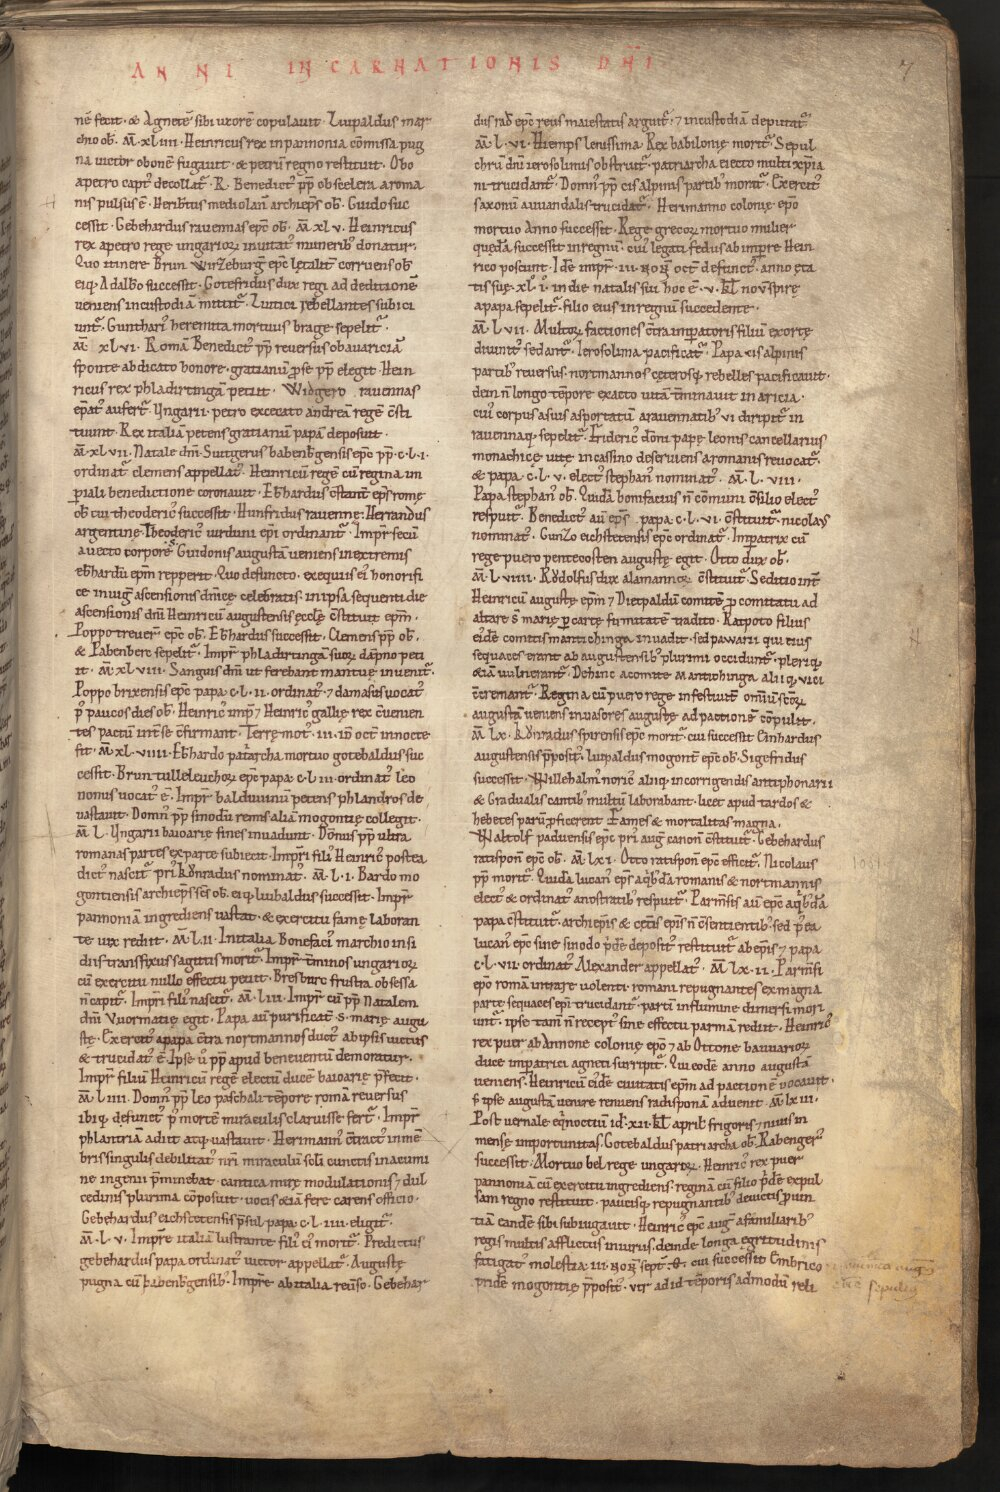 ANNI INCARNATIONIS DNI
7
nē fecit · & Agnetē sibi uxorē copulauit · Liupaldus mar
chio ob̄. Am̄. xl iiii. Heinricus rex in pannonia cōmissa pug
na uictor obonē fugauit · & petrū regno restituit. Obo
apetro capt᷒ decollat᷑. R. Benedict᷒ pp̄ ob scelera aroma
nis pulsus ē. Heribt̄us mediolan̄ archiep̄s ob̄. Guido suc
cessit. Gebehardus rauennas ep̄c ob̄. am̄ xl v. Heinricus
rex apetro rege ungarioꝝ inuitat᷒ munerib᷒ donatur.
Quo itinere Brun wirzeburḡ ep̄c lętalit̄ corruens ob̄
eiq; Adalbo successit. Gotefridus dux regi ad deditionē
ueniens in custodiā mittit᷑. Liutici rebellantes subici
unt᷑. Gunthari᷒ heremita mortuus brage sepelit᷑.
am̄ xl vi. Romā Benedict᷒ pp̄ reuersus ob auariciā
sponte abdicato honore · gratianū p̄ se pp̄ elegit. Hein
ricus rex phladirtingā petiit. Widgero rauennas
epat᷒ aufert᷑. Ungarii · petro excecato andreā regē c̄sti
tuunt. Rex italiā petens gratianū papā deposuit.
am̄. xl vii. Natale dn̄i Suitgerus babenb̄gensis ep̄c pp̄ · c · l · i ·
ordinat᷑ clemens appellat᷑. Heinricū regē cū regina im
ꝑiali benedictione coronauit. Eb̄hardus c̄stant̄ ep̄s romę
ob̄ cui theoderic᷒ successit. Hunfridus rauenne. Herrandus
argentinę. Theoderic᷒ uirduni ep̄i ordinant᷑. Impr̄ secū
auecto corpore s̄ Guidonis augustā ueniens in extremis
eb̄hardū ep̄m repperit. Quo defuncto · exequiis ei᷒ honorifi
ce in uiḡ ascensionis dn̄icę celebratis · in ipsa sequenti die
ascensionis dn̄i Heinricū augustensis ecclę c̄stituit ep̄m.
Poppo treuer̄ ep̄c ob̄. Eb̄hardus successit. Clemens pp̄ ob̄.
& Pabenberc sepelit᷑. Impr̄ phladirtingā suoꝝ dāpno peti
it. am̄. xl viii. Sanguis dn̄i ut ferebant mantuę inuenit᷑.
Poppo brixensis ep̄c papa · c · l · ii · ordinat᷑ ⁊ damasus uocat᷑
p᷒ paucos dies ob̄. Heinric᷒ imp̄r ⁊ Heinric᷒ gallię rex c̄uenien
tes pactū int̄ se c̄firmant. Terrę mot᷒ · iii · id̄ oct̄ in nocte
fit. am̄. xl viiii. Eb̄hardo pat̄archa mortuo gotebaldus suc
cessit. Brun tulleleuchoꝝ ep̄c papa · c · l · iii · ordinat᷑ leo
nonus uocat᷒ ē. Impr̄ balduuinū petens phlandros de
uastauit. Domn᷒ pp̄ sinodū remis aliā mogontię collegit.
am̄. L. Ungarii baioarię fines inuadunt. Dōnus pp̄ ultra
romanas partes ex parte subiecit. Impr̄i fili᷒ Heinric᷒ postea
dict᷒ nascit᷑ pri᷒ Kv̊nradus nominat᷒. am̄. L. i. Bardo mo
gontiensis archiep̄s s̄c̄s ob̄. eiq; liubaldus successit. Impr̄
pannoniā ingrediens uastat · & exercitu famę laboran
te uix rediit. am̄. L. ii. In italia Bonefaci᷒ marchio insi
diis transfixus sagittis morit᷑. Impr̄ t̄minos ungarioꝝ
cū exercitu nullo effectu petiit. Bresburc frustra obsessa
n̄ capit᷑. Impr̄i fili᷒ nascit᷑. am̄. L. iii. Impr̄ cū pp̄ Natalem
dn̄i Vuormatię egit. Papa au᷒ purificat̄ s̄. marię augu
stę. Exercit᷒ apapa c̄tra nortmannos duct᷒ ab ipsis uictus
& trucidat᷒ ē. Ipse u᷒ pp̄ apud beneuentū demoratur.
Impr̄ filiū Heinricū regē electū ducē baioarię p̄fecit.
am̄. L. iiii. Domn᷒ pp̄ leo paschali tēpore romā reuersus
ibiq; defunct᷒ p᷒ mortē miraculis claruisse fert᷑. Impr̄
phlantriā adiit atq; uastauit. Herimann᷒ c̄tract᷒ in mē
bris singulis debilitat᷒ nr̄i miraculū scl̄i cunctis in acumi
ne ingenii p̄minebat · cantica mirę modulationis ⁊ dul
cedinis plurima cōposuit · uocis &iā fere carens officio.
Gebehardus eichstetensis p̄sul papa · c · l · iiii · eligit᷑.
am̄. L. v. Impr̄e italiā lustrante fili᷒ ei᷒ morit᷑. Predictus
gebehardus papa ordinat᷒ uictor appellat᷑. Augustę
pugna cū pabenb̄gensib᷒. Impr̄e ab italia reuerso. Gebehar
dus rad̄ ep̄c reus maiestatis arguit᷑ · ⁊ in custodiā deputat᷑
am̄. L. vi. Hiemps lenissima. Rex babilonię morit᷑. Sepul
chrū dn̄i ierosolimis obstruit᷑. patriarcha eiecto multi xp̄ia
ni trucidant᷑. Domn᷒ pp̄ cisalpinis partib᷒ morit᷑. Exercit᷒
saxonū auuandalis trucidat᷑. Herimanno colonię ep̄o
mortuo Anno successit. Rege grecoꝝ mortuo mulier
quędā successit in regnū · cui᷒ legati fedus ab imp̄re Hein
rico poscunt. Idē impr̄ · iii · non̄ oct̄ defunct᷒ · anno ęta
tis suę · xl · i · in die natalis sui hoc ē · v · kl̄ nov̄ spirę
apapa sepelit᷑ · filio eius in regnū succedente.
am̄. L. vii. Multoꝝ factiones c̄tra imp̄atoris filiū exortę
diuinit᷒ sedant᷑. Ierosolima pacificat᷑. Papa cisalpinis
partib᷒ reuersus · nortmannos cęterosq; rebelles pacificauit.
dem n̄ longo tēpore exacto uitā t̄minauit in aricia.
cui᷒ corpus a suis asportatū arauennatib᷒ ui diripit᷑ in
rauennaq; sepelit᷑. Frideric᷒ dōni papę leonis cancellarius
monachicę uitę in cassino deseruiens aromanis reuocat᷑.
& papa · c · l · v · elect᷒ stephan᷒ nominat᷑. am̄. L. viii.
Papa stephan᷒ ob̄. Quidā bonifacius n̄ cōmuni c̄silio elect᷒
respuit᷑. Benedict᷒ au᷒ ep̄s papa · c · l · vi · c̄stituit᷑ · nicolaus
nominat᷑. Gunzo eichstetensis ep̄c ordinat᷑. Imp̄atrix cū
rege puero pentecosten augustę egit. Otto dux ob̄.
am̄. L. viiii. Rv̊dolfus dux alamannoꝝ c̄stituit᷑. Seditio int̄
Heinricū augustę ep̄m ⁊ Dietpaldū comitē ꝓ comitatu ad
altare s̄ marię ꝑ cartę firmitatē tradito. Ratpoto filius
ei᷒dē comitis mantichinga inuadit · sed pawarii qui ei᷒
sequaces erant ab augustensib᷒ plurimi occidunt᷑ · pleriq;
&iā uulnerant᷑. Dehinc acomite mantichinga aliiq; uici
c̄cremant᷑. Regina cū puero rege infestiuit̄ omniū s̄coꝝ
augustā ueniens inuasores augustę ad pactionē cōpulit.
am̄. Lx. Kv̊nradus spirensis ep̄c morit᷑ · cui successit Einhardus
augustensis p̄posit᷒. Luipaldus mogont̄ ep̄c ob̄. Sigefridus
successit. Willehalm᷒ noric᷒ aliiq; incorrigendis antiphonarii
& Gradualis cantib᷒ multū laborabant · licet apud tardos &
hebetes parū p̄ficerent. Fames & mortalitas magna.
Waltolf paduensis ep̄c pri᷒ auḡ canon̄ c̄stituit᷑. Gebehardus
ratispon̄ ep̄c ob̄. am̄. Lx i. Otto ratispon̄ ep̄c efficit᷑. Nicolaus
pp̄ morit᷑. Quidā lucan᷒ ep̄s aq̄b᷒dā romanis & nortmannis
elect᷒ & ordinat᷒ anostratib᷒ respuit᷑. Parm̄sis au᷒ ep̄c aq̄b᷒dā
papa c̄stituit᷑ · archiep̄is & cęt̄is ep̄is n̄ c̄sentientib᷒ · sed p̄ ea
lucan᷒ ep̄c sine sinodo p̄dē deposit᷒ restituit᷑ ab ep̄is ⁊ papa
c · l · vii · ordinat᷒ Alexander appellat᷑. am̄. Lx. ii. Parm̄si
ep̄o romā intrare uolenti · romani repugnantes ex magna
parte sequaces ep̄i trucidant᷑ · parti in flumine dimersi mori
unt᷑. ipse tam̄ n̄ recept᷒ sine effectu parmā rediit. Heinric᷒
rex puer ab Annone colonię ep̄o ⁊ ab Ottone bauuarioꝝ
duce imp̄atrici agneti surripit᷑. Qui eodē anno augustā
ueniens · Heinricū ei᷒dē ciuitatis ep̄m ad pactionē uocauit.
s̄ ipse augustā uenire renuens radisponā aduenit. am̄ lx iii.
Post uernale eq̄noctiū id̄ · xii · kl̄ april̄ frigoris ⁊ niuis in
mense importunitas. Gotebaldus patriarcha ob̄. Rabenger᷒
successit. Mortuo bel rege ungaroꝝ · Heinric᷒ rex puer
pannoniā cū exercitu ingrediens · reginā cū filio p̄dē expul
sam regno restituit · paucisq; repugnantib᷒ deuictis puin
tiā eandē sibi subiugauit. Heinric᷒ ep̄c auḡ afamiliarib᷒
regis multis afflictus iniuriis · deinde longa ęgritudinis
fatigat᷒ molestia · iii · non̄ sept̄ · ob̄ · cui successit Embrico
pridē mogontię p̄posit᷒ · uir ad id tēporis admodū reli